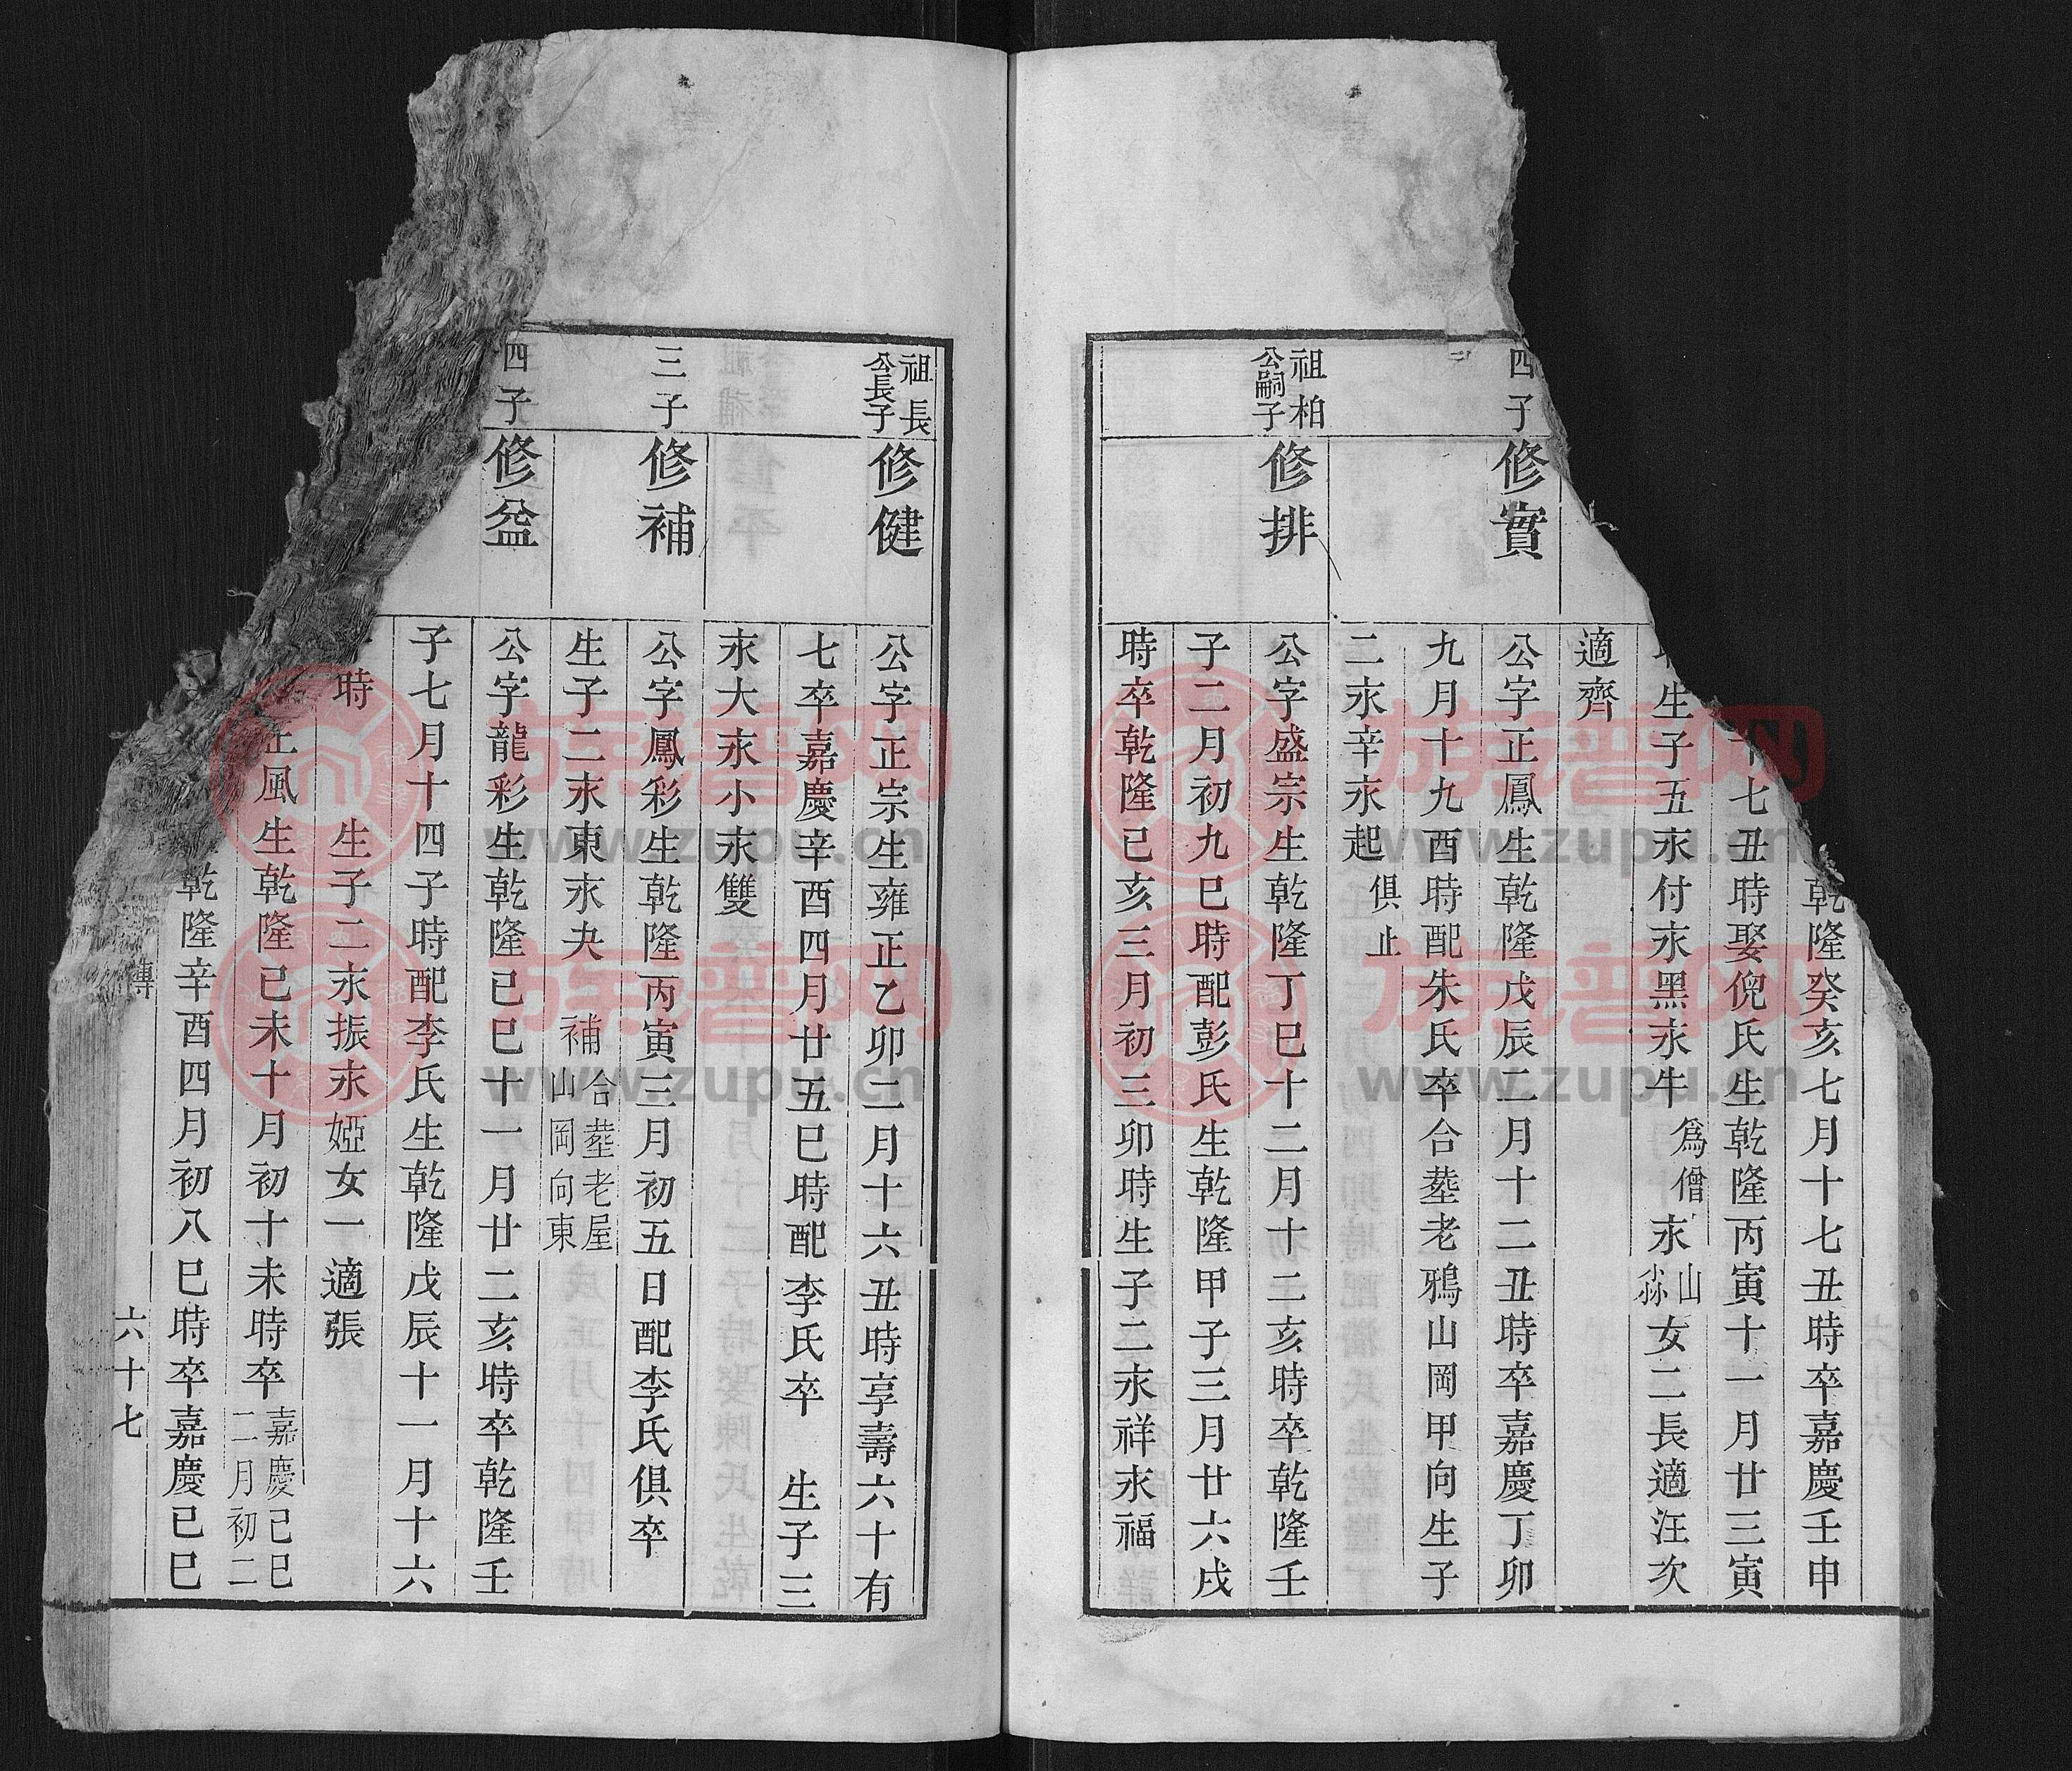 乾隆癸亥七月十七丑時卒嘉慶壬申
十七丑時娶倪氏生乾隆丙寅十一月廿三寅
生子五永付永黑永牛為僧永山永淼女二長適汪次
適齊
四子
修實
公字正鳳生乾隆戊辰二月十二丑時卒嘉慶丁卯
九月十九酉時配朱氏卒合塟老鴉山岡甲向生子
二永辛永起俱止
祖柏
公嗣子
修排
公字盛宗生乾隆丁巳十二月十二亥時卒乾隆壬
子二月初九巳時配彭氏生乾隆甲子三月廿六戌
時卒乾隆已亥三月初三卯時生子二永祥永福
祖長
公長子
修健
公字正宗生雍正乙卯二月十六丑時享壽六十有
七卒嘉慶辛酉四月廿五巳時配李氏卒 生子三
永大永小永雙
三子
修補
公字鳳彩生乾隆丙寅三月初五日配李氏俱卒
合塟老屋
補山岡向東
生子二永東永夬
四子
修益
公字龍彩生乾隆已巳十一月廿二亥時卒乾隆壬
子七月十四子時配李氏生乾隆戊辰十一月十六
時 生子二永振永婭女一適張
正風生乾隆已未十月初十未時卒嘉慶已巳
二月初二
乾隆辛酉四月初八巳時卒嘉慶已巳
傳
六十七
族譜网
www.zupu.cn
族譜网
www.zupu.cn
族譜网
www.zupu.cn
族譜网
www.zupu.cn